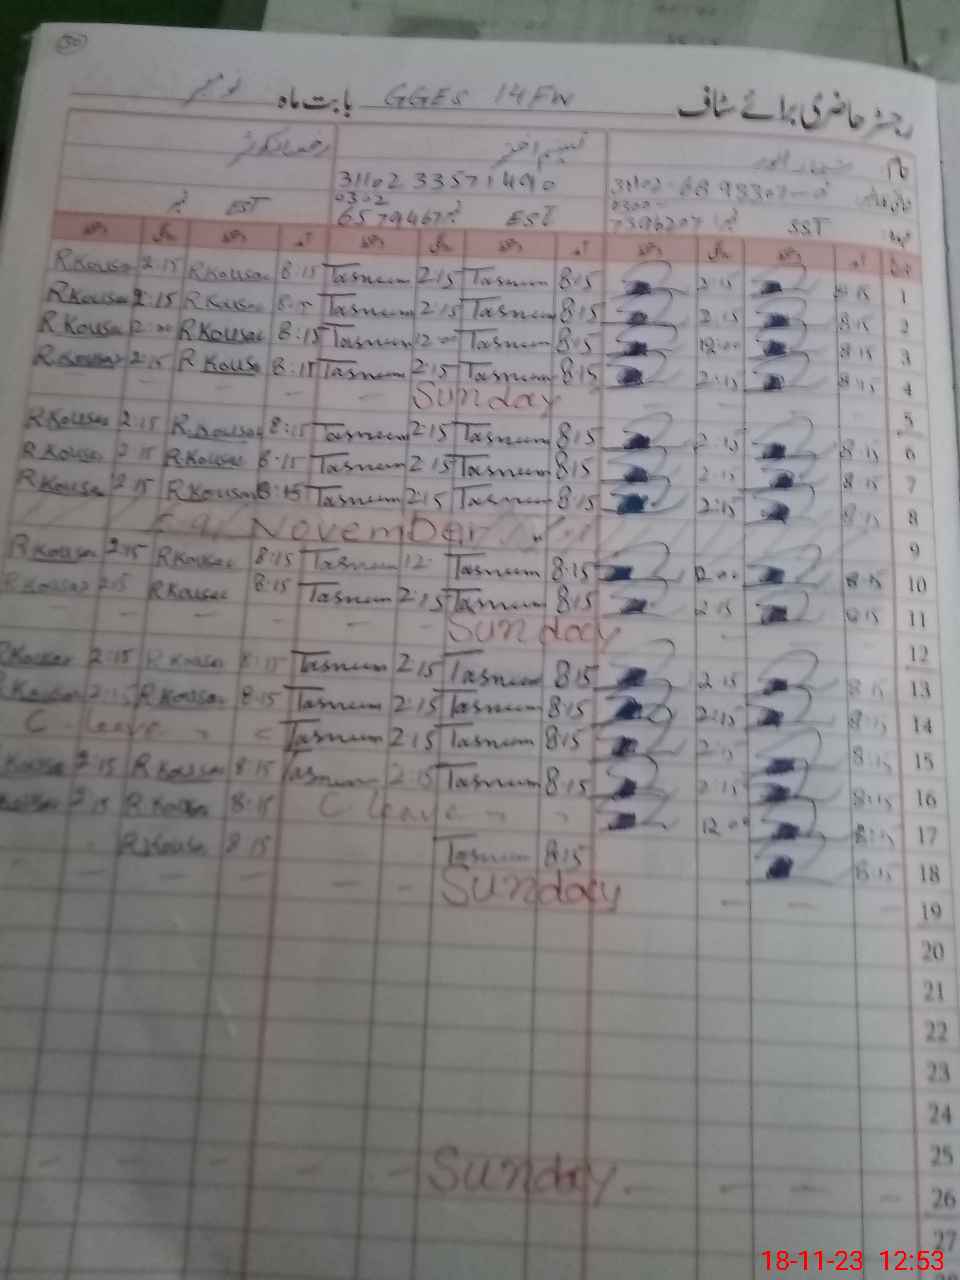 30
رجسٹر حاضری برائے سٹاف GGES 14FW بابت ماہ نومبر
نام
31102 3357149 0
0302
6579467 EST
0300
7396207 SST
EST
دستخط روانگی دستخط آمد دستخط روانگی دستخط آمد دستخط روانگی دستخط آمد تاریخ
R Kousar 2:15 R Kousar 8:15 Tasnum 2:15 Tasnum 8:15 2:15 8:15 1
R Kousar 2:15 R Kousar 8:15 Tasnum 2:15 Tasnum 8:15 2:15 8:15 2
R Kousar 2:00 R Kousar 8:15 Tasnum 12:00 Tasnum 8:15 12:00 8:15 3
R Kousar 2:15 R Kousar 8:15 Tasnum 2:15 Tasnum 8:15 2:15 8:15 4
- - - - Sunday - - - 5
R Kousar 2:15 R Kousar 8:15 Tasnum 2:15 Tasnum 8:15 2:15 8:15 6
R Kousar 2:15 R Kousar 8:15 Tasnum 2:15 Tasnum 8:15 2:15 8:15 7
R Kousar 2:15 R Kousar 8:15 Tasnum 2:15 Tasnum 8:15 2:15 8:15 8
9 November 9
R Kousar 2:15 R Kousar 8:15 Tasnum 12 Tasnum 8:15 12:00 8:15 10
R Kousar 2:15 R Kousar 8:15 Tasnum 2:15 Tasnum 8:15 2:15 8:15 11
- - - - - Sunday - 12
R Kousar 2:15 R Kousar 8:15 Tasnum 2:15 Tasnum 8:15 2:15 8:15 13
R Kousar 2:15 R Kousar 8:15 Tasnum 2:15 Tasnum 8:15 2:15 8:15 14
C leave Tasnum 2:15 Tasnum 8:15 2:15 8:15 15
Kousar 2:15 R Kousar 8:15 Tasnum 2:15 Tasnum 8:15 2:15 8:15 16
Kousar 2:15 R Kousar 8:15 C leave 12:00 8:15 17
R Kousar 8:15 Tasnum 8:15 8:15 18
- - - - - Sunday - - - 19
20
21
22
23
24
25
- - - - - Sunday - - - - 26
27
18-11-23 12:53